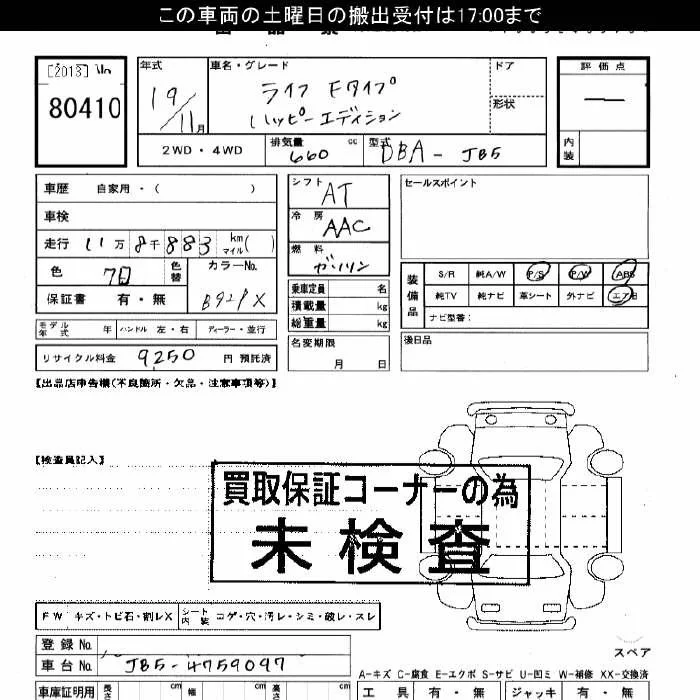 この車両の土曜日の搬出受付は17:00まで
[2013] No
80410
年式 19/11月
車名・グレード ライフ Fタイプ ハッピーエディション
ドア
形状
評価点 ―
内装
2WD・4WD
排気量 660 cc
型式 DBA-JB5
車歴 自家用・( )
車検
走行 11万8千883 km マイル( )
色
色替
カラーNo.
保証書 有・無
シフト AT
冷房 AAC
燃料 ガソリン
乗車定員 名
積載量 kg
総重量 kg
名変期限 月 日
セールスポイント
装備品 S/R 純A/W P/S P/W ABS
純TV 純ナビ 革シート 外ナビ エアB
ナビ型番:
後日品
モデル年式 年 ハンドル 左・右 ディーラー・並行
リサイクル料金 9250 円 預託済
【出品店申告欄(不良箇所・欠品・注意事項等)】
【検査員記入】
買取保証コーナーの為
未検査
FW キズ・トビ石・割レX シート内装 コゲ・穴・汚レ・シミ・破レ・スレ
登録No.
車台No. JB5-4759097
スペア
A-キズ C-腐食 E-エクボ S-サビ U-凹ミ W-補修 XX-交換済
車庫証明用 長さ cm 幅 cm 高さ cm
工具 有・無 ジャッキ 有・無